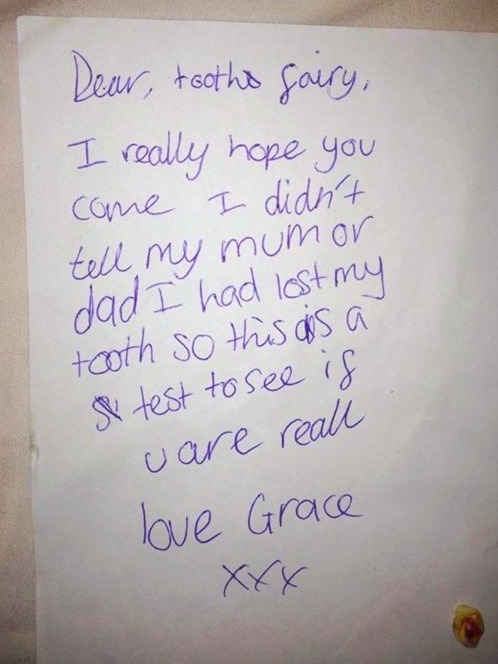 Dear, tooth fairy,
I really hope you
come I didn't
tell my mum or
dad I had lost my
tooth so this is a
test to see if
u are reall
love Grace
xxx